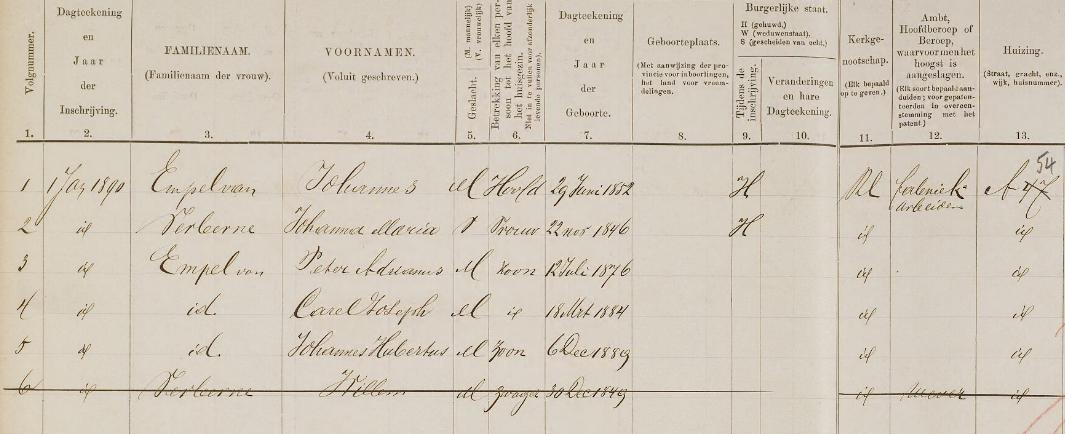 Volgnummer.
Dagteekening
en
Jaar
der
Inschrijving.
FAMILIENAAM.
(Familienaam der vrouw).
VOORNAMEN.
(Voluit geschreven.)
Geslacht. (M. mannelijk) (V. vrouwelijk)
Betrekking van elken persoon tot het hoofd van het huisgezin.
Niet in te vullen voor afzonderlijk levende personen.)
Dagteekening
en
Jaar
der
Geboorte.
Geboorteplaats.
(Met aanwijzing der provincie voor inboorlingen, het land voor vreemdelingen.)
Burgerlijke staat.
H (gehuwd.)
W (weduwenstaat).
S (gescheiden van echt.)
Tijdens de inschrijving.
Veranderingen
en hare
Dagteekening.
Kerkgenootschap.
(Elk bepaald op te geven.)
Ambt,
Hoofdberoep of
Beroep,
waarvoor men het
hoogst is
aangeslagen.
(Elk soort bepaald aanduiden; voor gepatenteerden in overeenstemming met het patent.)
Huizing.
(Straat, gracht, enz., wijk, huisnummer).
1. 2. 3. 4. 5. 6. 7. 8. 9. 10. 11. 12. 13.
54
1 1 Jan 1890 Empel van Johannes M Hoofd 29 Juni 1852 H RC fabriek- A 47
arbeider
2 id Verberne Johanna Maria V Vrouw 22 nov 1846 H id id
3 id Empel van Peter Adrianus M zoon 12 Juli 1876 id id
4 id id. Carel Joseph M id 18 Mrt 1884 id id
5 id id. Johannes Hubertus M Zoon 6 Dec 1889 id id
6 id Verberne Willem M zwager 30 Dec 1849 id wever id